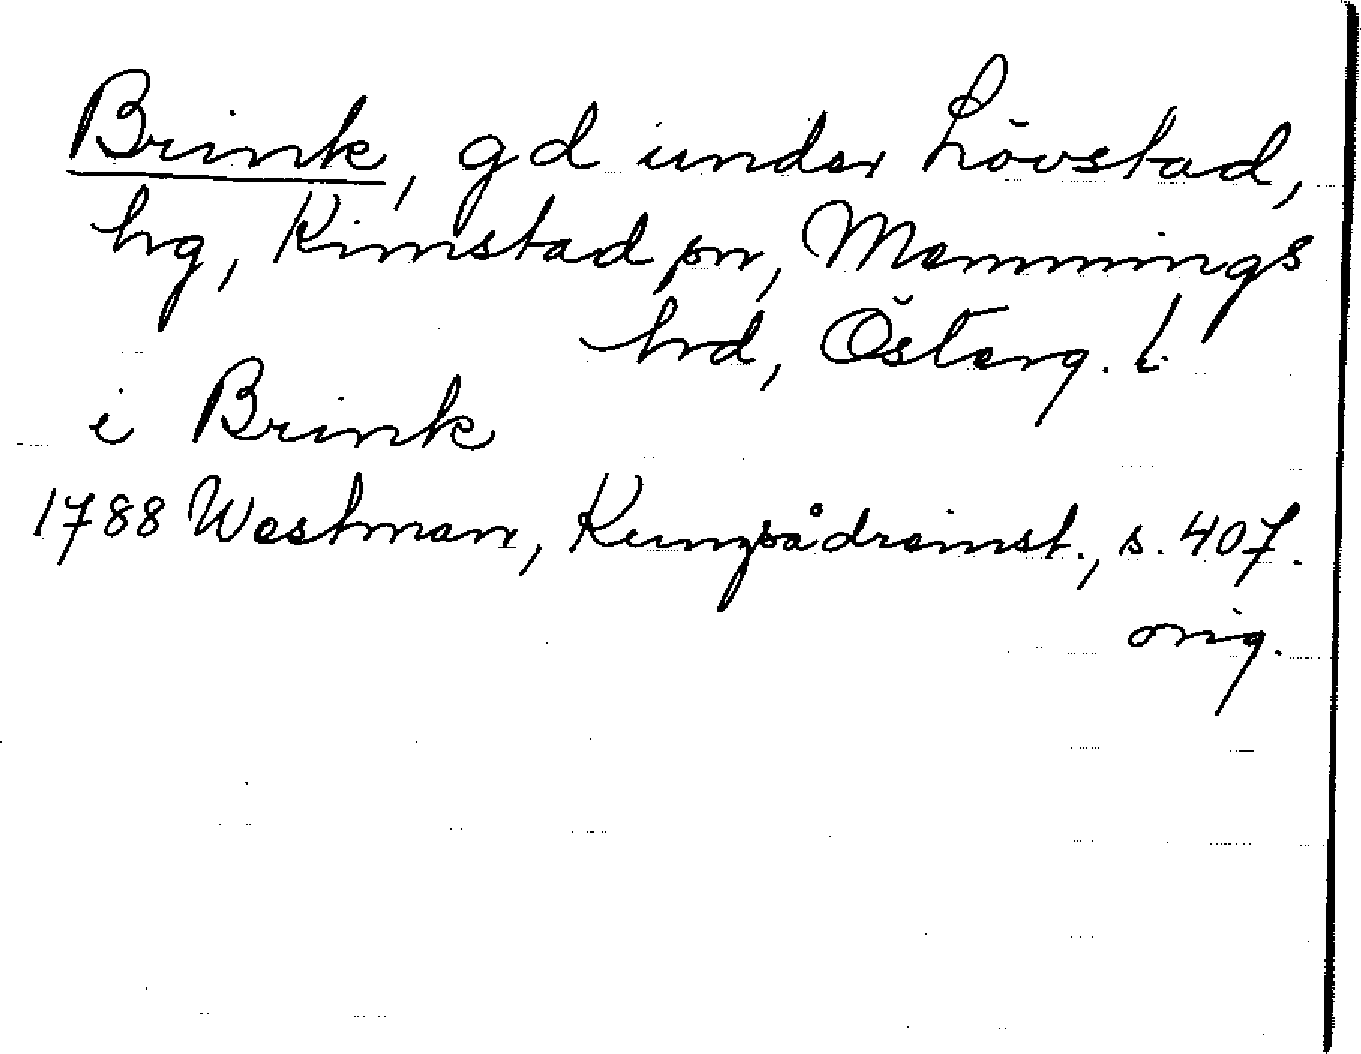 Brink, gd under Lövstad,
hg, Kimstad sn, Memmings
hrd, Österg. l.
i Brink
1788 Westman, Kungsådreinst., s. 407.
orig.